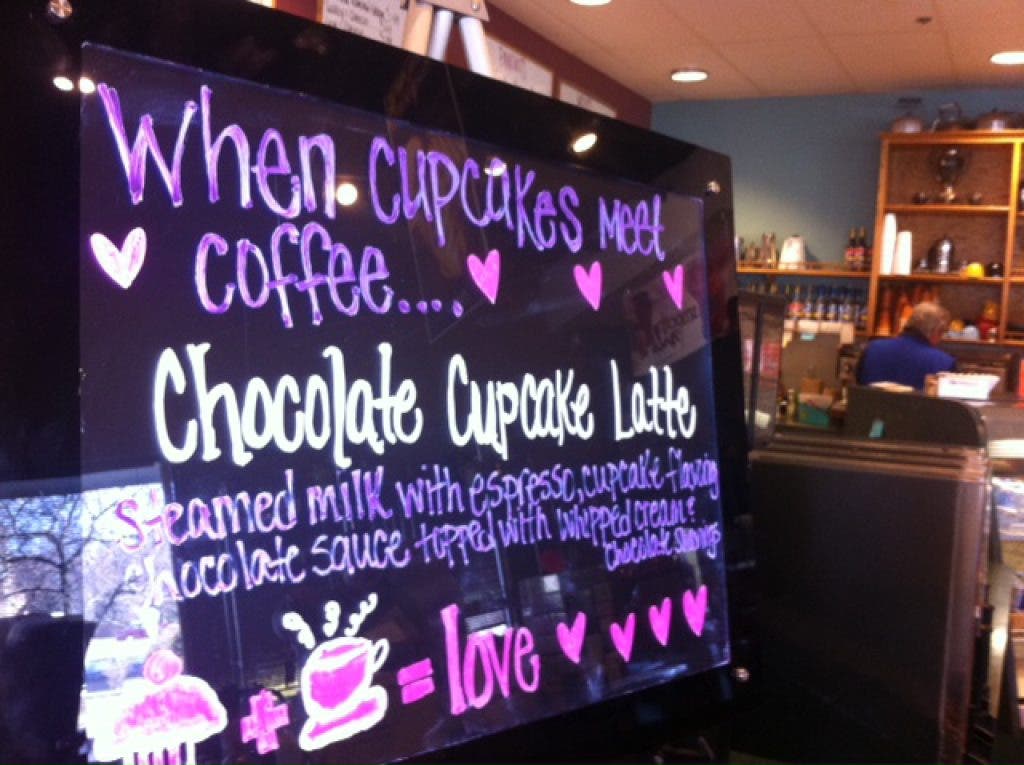 When cupcakes meet
coffee....
Chocolate Cupcake Latte
Steamed milk with espresso, cupcake flavoring
chocolate sauce topped with whipped cream &
chocolate shavings
+ = love